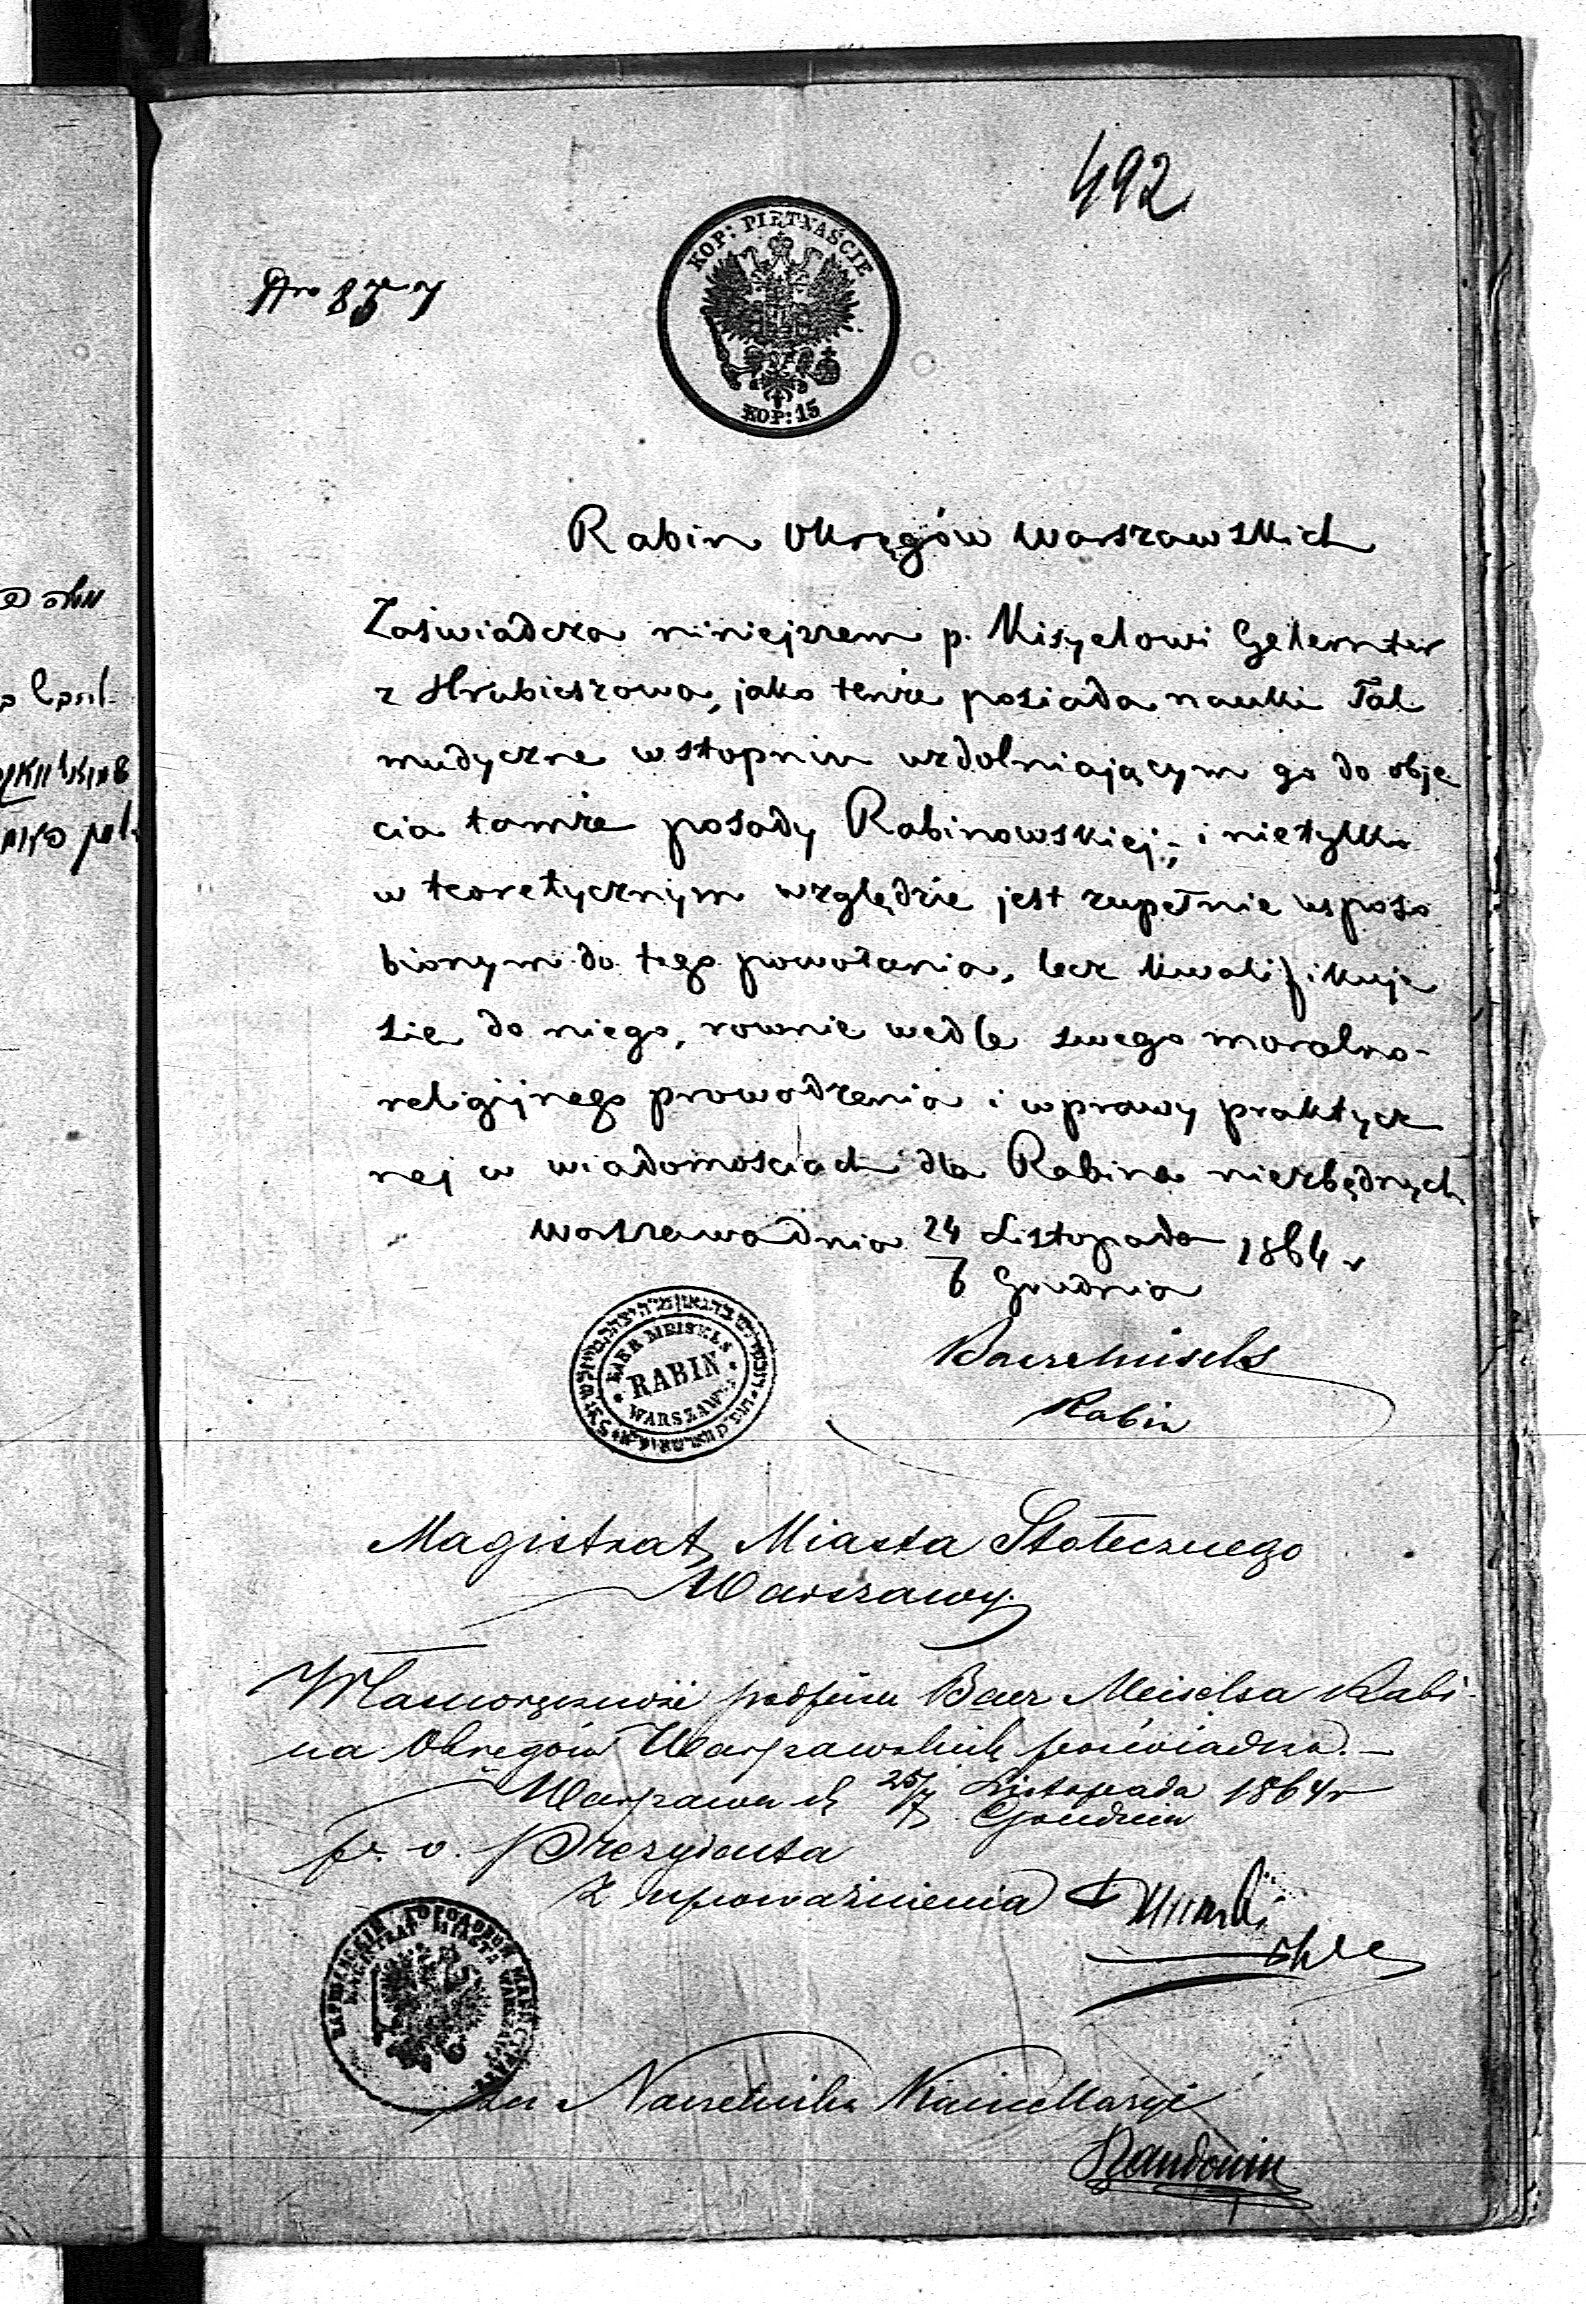 492
KOP: PIĘTNAŚCIE
KOP: 15
Rabin Okręgów Warszawskich
Zaświadcza niniejszem p. Kisyelowi Gelernter
z Hrubieszowa, jako tenże posiada nauki Tal
mudyczne w stopniu uzdolniającym go do obję
cia tamże posady Rabinowskiej; i nietylko
w teoretycznym względzie jest zupełnie usposo
bionym do tego powołania, lecz kwalifikuje
się do niego, rownie wedle swego moralno-
religijnego prowadzenia i wprawy praktycz
nej w wiadomościach dla Rabina niezbędnych
Warszawa dnia 24 Listopada 1864 r
6 Grudnia
BAER MEISELS
RABIN
WARSZAWA
Baer Meisels
Rabin
Magistrat Miasta Stołecznego
Warszawy.
Własnoręczność podpisu Baer Meiselsa Rabi-
na Okręgów Warszawskich poświadcza.—
Warszawa d. 25/7 Listopada 1864 r
Grudnia
p. o. Prezydenta
Z upoważnienia
MAGISTRAT MIASTA WARSZAWY
za Naczelnika Kancellaryi